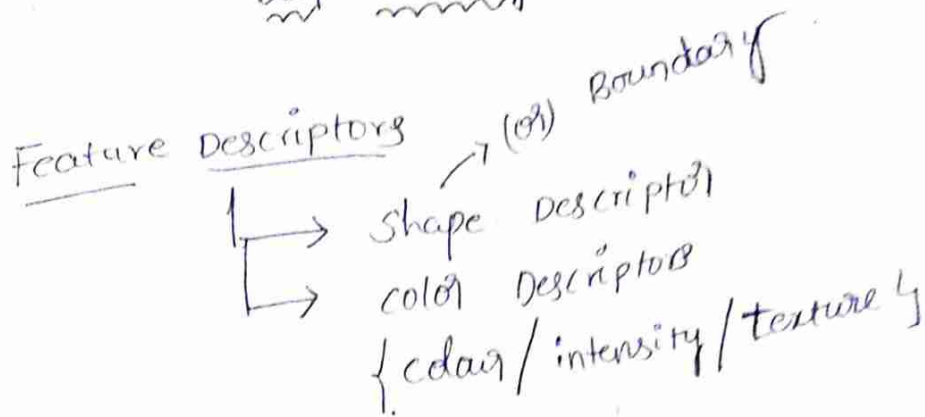 Feature Descriptors
(or) Boundary
Shape Descriptor
color Descriptors
{color/intensity/texture}